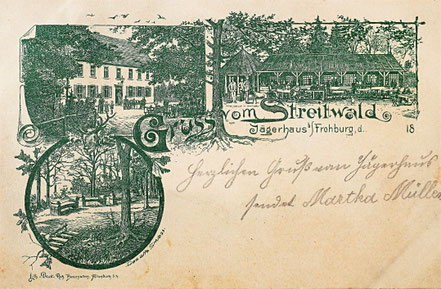 Gruss vom Streitwald
Jägerhaus b/Frohburg, d. 18
Herzlichen Gruß vom Jägerhaus
sendet Martha Müller